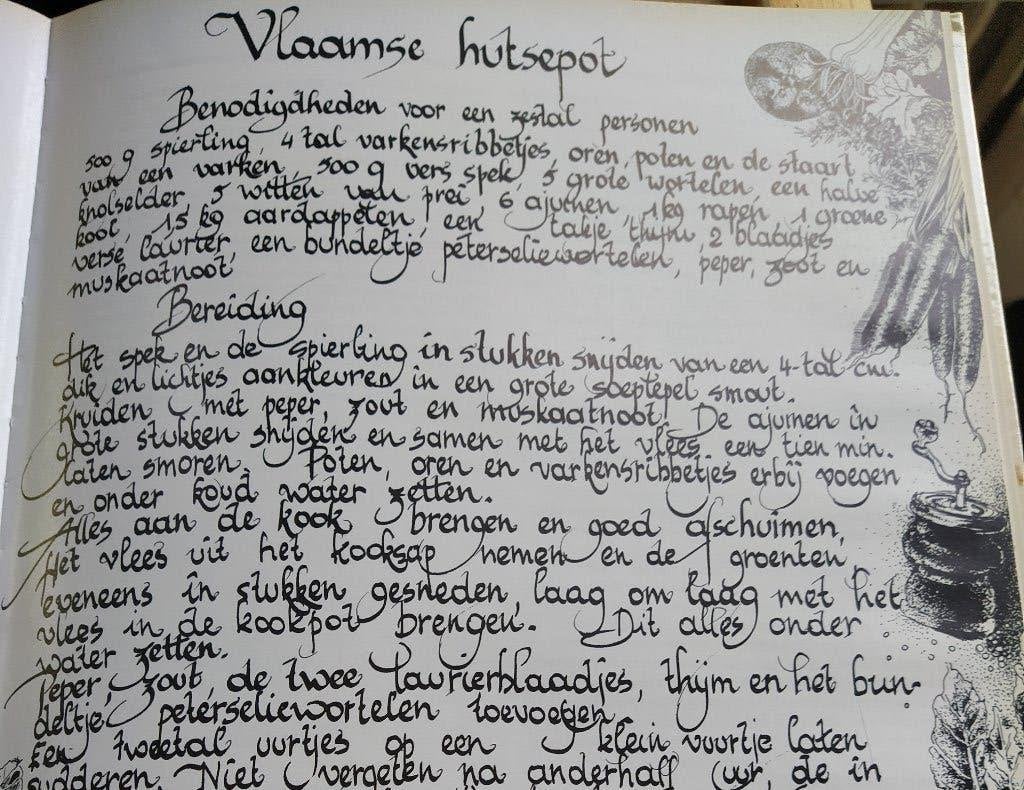 Vlaamse hutsepot
Benodigdheden voor een zestal personen
500 g spierling, 4 tal varkensribbetjes, oren, poten en de staart
van een varken, 500 g vers spek, 5 grote wortelen, een halve
knolselder, 5 witten van prei, 6 ajuinen, 1 kg rapen, 1 groene
kool, 1,5 kg aardappelen, een takje thym, 2 blaadjes
verse laurier, een bundeltje peterseliewortelen, peper, zout en
muskaatnoot
Bereiding
Het spek en de spierling in stukken snijden van een 4-tal cm.
dik en lichtjes aankleuren in een grote soeplepel smout.
Kruiden met peper, zout en muskaatnoot. De ajuinen in
grote stukken snijden en samen met het vlees een tien min.
laten smoren. Poten, oren en varkensribbetjes erbij voegen
en onder koud water zetten.
Alles aan de kook brengen en goed afschuimen,
Het vlees uit het kooksap nemen en de groenten,
eveneens in stukken gesneden, laag om laag met het
vlees in de kookpot brengen. Dit alles onder
water zetten.
Peper, zout, de twee laurierblaadjes, thijm en het bun-
deltje peterseliewortelen toevoegen.
Een tweetal uurtjes op een klein vuurtje laten
sudderen. Niet vergeten na anderhalf uur, de in